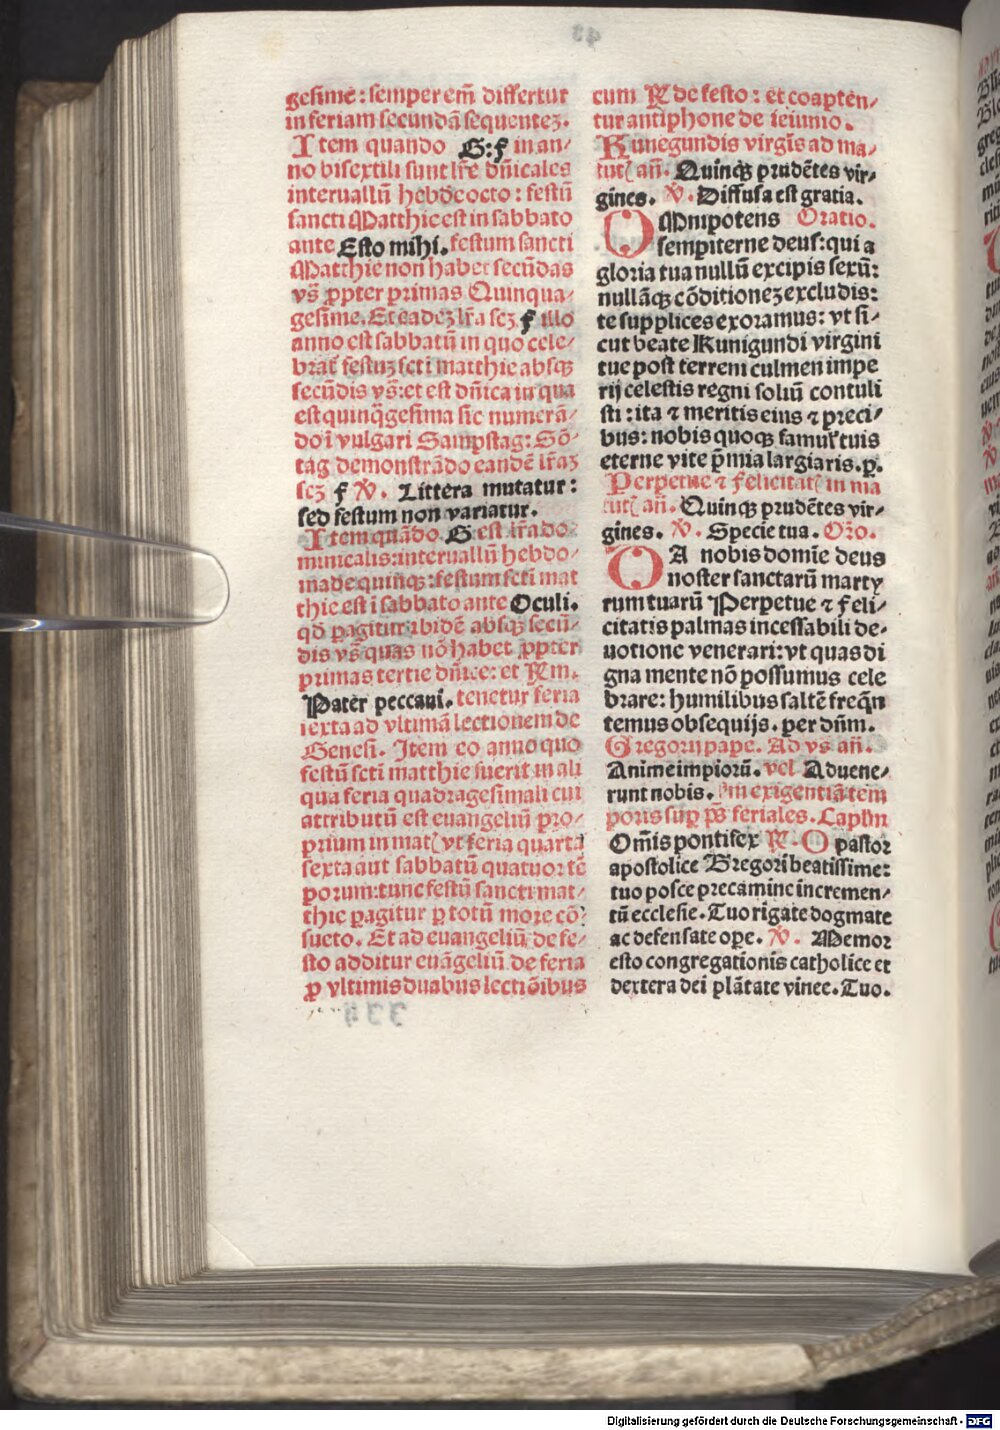 gesime: semper em̄ differtur
in feriam secundā sequentez.
Item quando G: f in an⸗
no bisextili sunt lr̄e dn̄icales
interuallū hebdōe octo: festū
sancti Matthie est in sabbato
ante Esto mihi. festum sancti
Matthie non habet secūdas
vs̄ ꝓpter primas Quinqua⸗
gesime. Et eadez lr̄a scz f illo
anno est sabbatū in quo cele⸗
brat᷑ festuz scti matthie absqꝫ
secūdis vs̄: et est dn̄ica in qua
est quinq̄gesima sic numerā⸗
do ī vulgari Sampstag: Sō⸗
tag demonstrādo eandē lr̄az
scz f V̄. Littera mutatur:
sed festum non variatur.
Item quādo G est lr̄a do⸗
minicalis: interuallū hebdo⸗
made quinqꝫ: festum scti mat
thie est ī sabbato ante Oculi.
qd̄ ꝑagitur ibidē absqꝫ secū⸗
dis vs̄ quas nō habet ꝓpter
primas tertie dn̄ice: et Rm.
Pater peccaui. tenetur feria
sexta ad vltimā lectionem de
Genesi. Item eo anno quo
festū scti matthie fuerit in ali
qua feria quadragesimali cui
attributū est euangeliū pro⸗
prium in mat᷑ vt feria quarta
sexta aut sabbatū quatuor tē
porum: tunc festū sancti mat⸗
thie ꝑagitur ꝑ totū more cō⸗
sueto. Et ad euangeliū de fe⸗
sto additur euāgeliū de feria
ꝑ vltimis duabus lectiōibus
cum R de festo: et coapten⸗
tur antiphone de ieiunio.
Kunegundis virgīs ad ma⸗
tut᷑ an̄. Quinqꝫ prudētes vir⸗
gines. V̄. Diffusa est gratia.
OMnipotens Oratio.
sempiterne deus: qui a
gloria tua nullū excipis sexū:
nullāqꝫ cōditionez excludis:
te supplices exoramus: vt si⸗
cut beate Kunigundi virgini
tue post terreni culmen impe
rij celestis regni soliū contuli
sti: ita ⁊ meritis eius ⁊ preci⸗
bus: nobis quoqꝫ famul᷑ tuis
eterne vite p̄mia largiaris. ꝑ.
Perpetue ⁊ felicitat᷑ in ma
tut᷑ an̄. Quinqꝫ prudētes vir⸗
gines. V̄. Specie tua. Or̄o.
DA nobis domīe deus
noster sanctarū marty
rum tuarū Perpetue ⁊ feli⸗
citatis palmas incessabili de⸗
uotione venerari: vt quas di
gna mente nō possumus cele
brare: humilibus saltē freq̄n
temus obsequijs. per dn̄m.
Gregorij pape. Ad vs̄ an̄.
Anime impiorū. vel Aduene⸗
runt nobis. ꝑm exigentiā tem
poris suꝑ ps̄ feriales. Capl̄m
Om̄is pontifex R. O pastor
apostolice Gregori beatissime:
tuo posce precamine incremen⸗
tū ecclesie. Tuo rigate dogmate
ac defensate oꝑe. V̄. Memor
esto congregationis catholice et
dextera dei plātate vinee. Tuo.
Digitalisierung gefördert durch die Deutsche Forschungsgemeinschaft - DFG